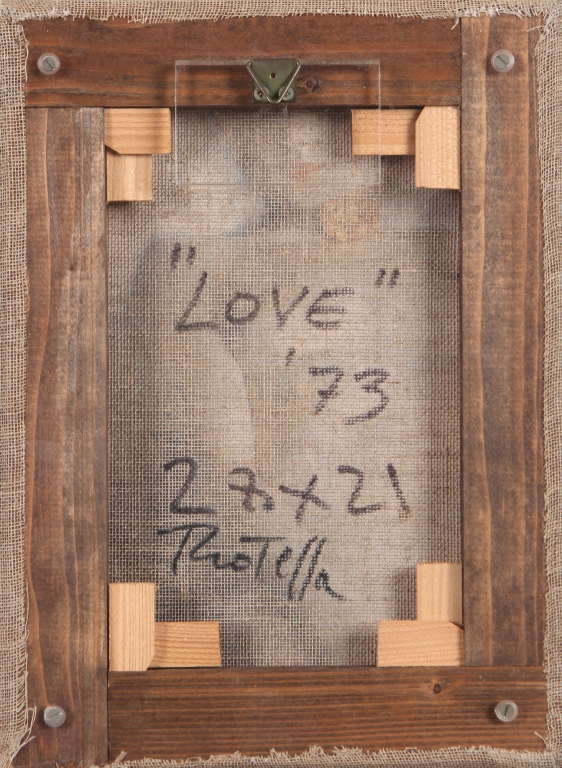 "LOVE"
'73
27x21
Rotella